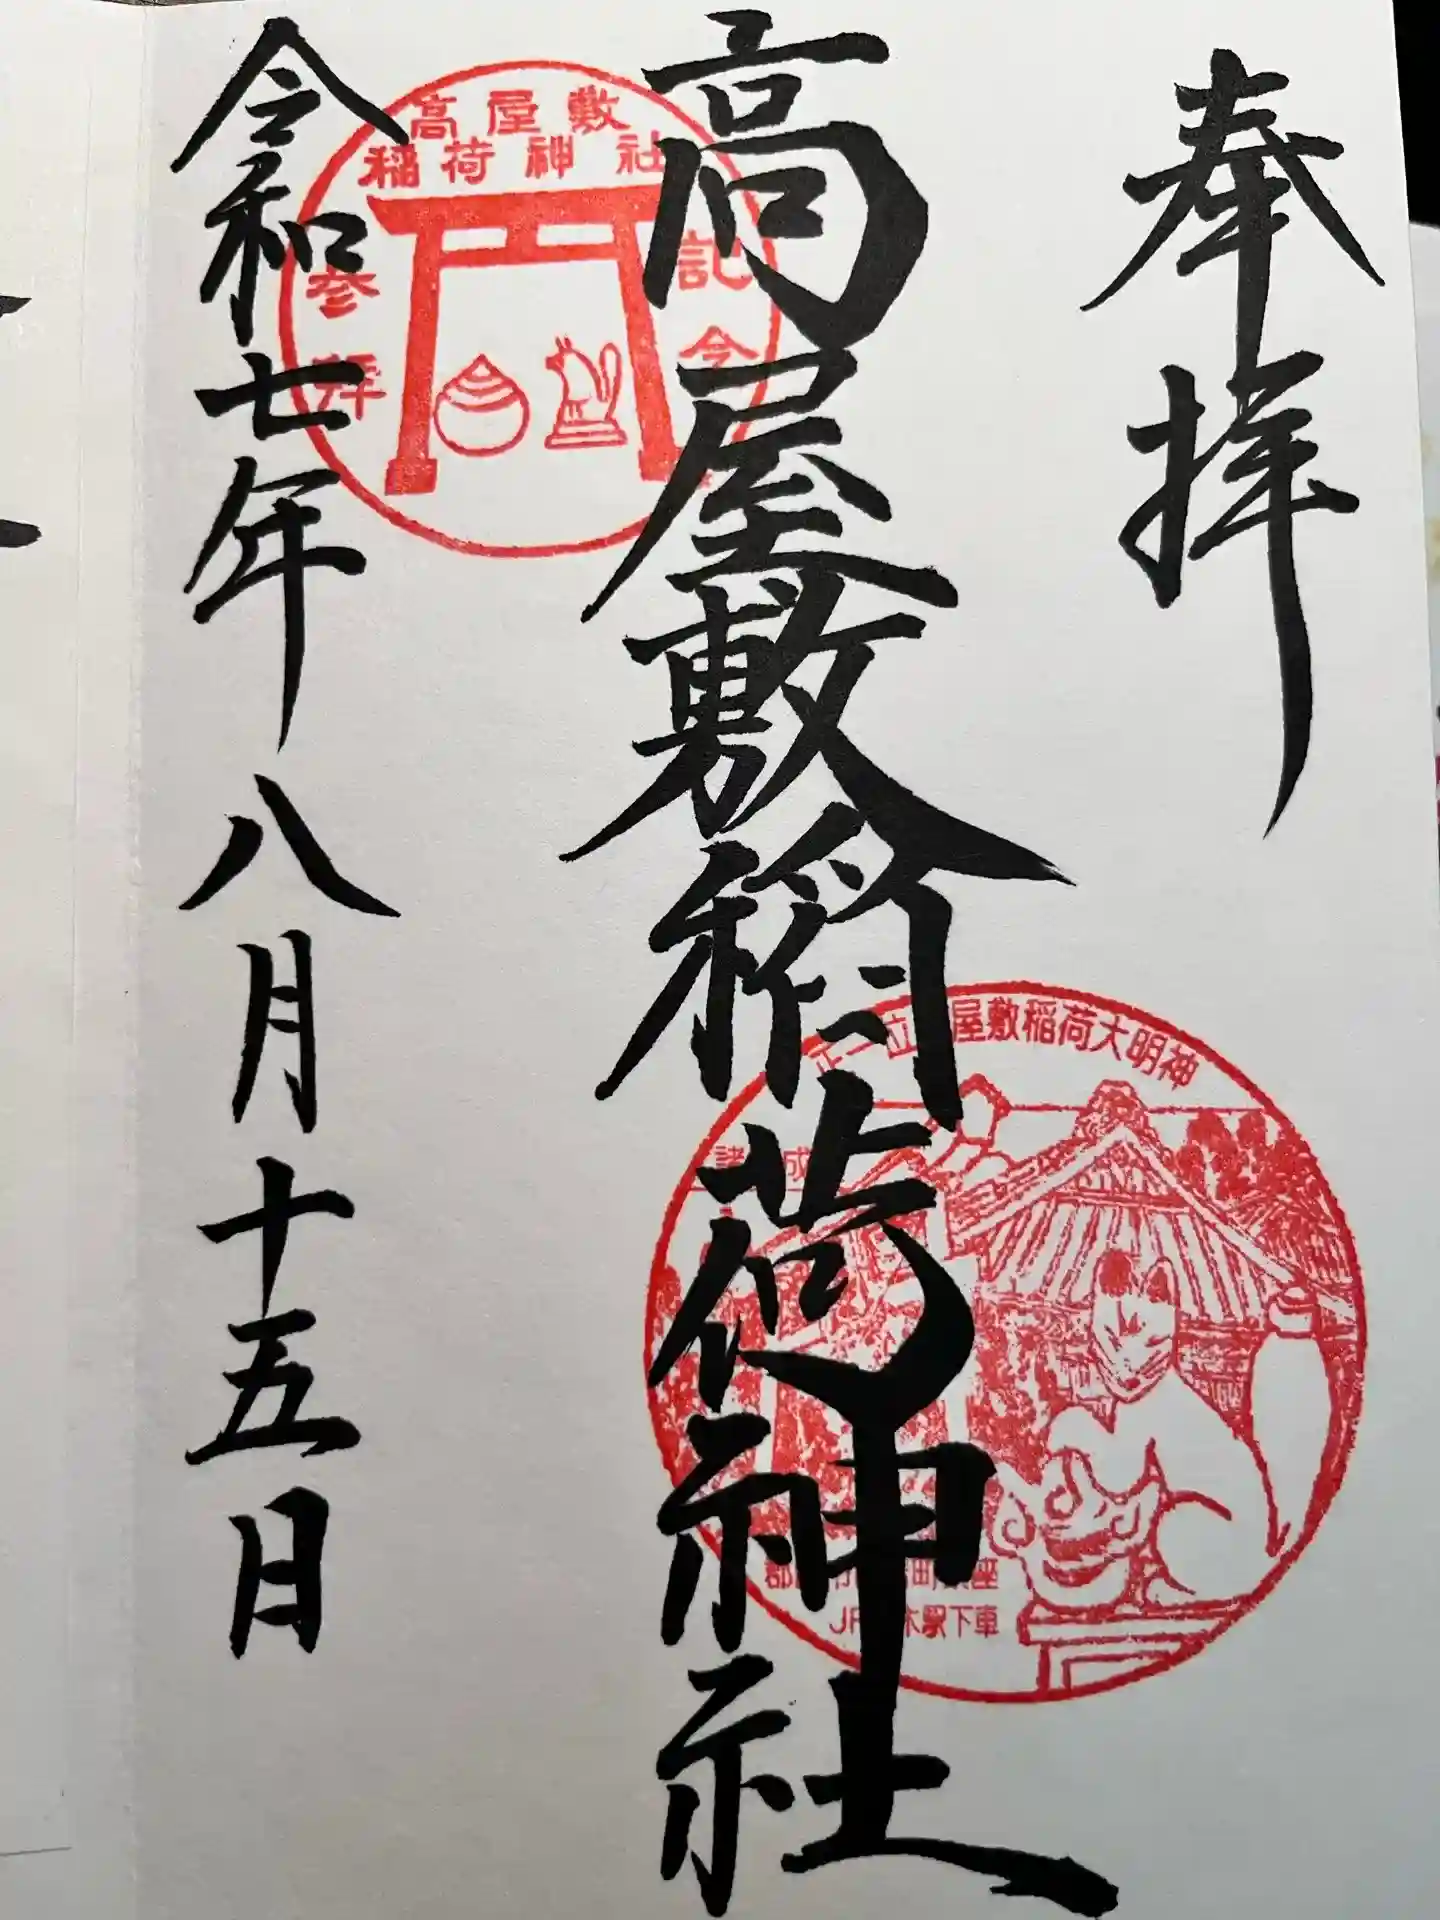 奉拝
高屋敷稲荷神社
令和七年八月十五日
高屋敷
稲荷神社
参拝
記念
正一位 屋敷稲荷大明神
諸 成
町 座
JR 木駅下車